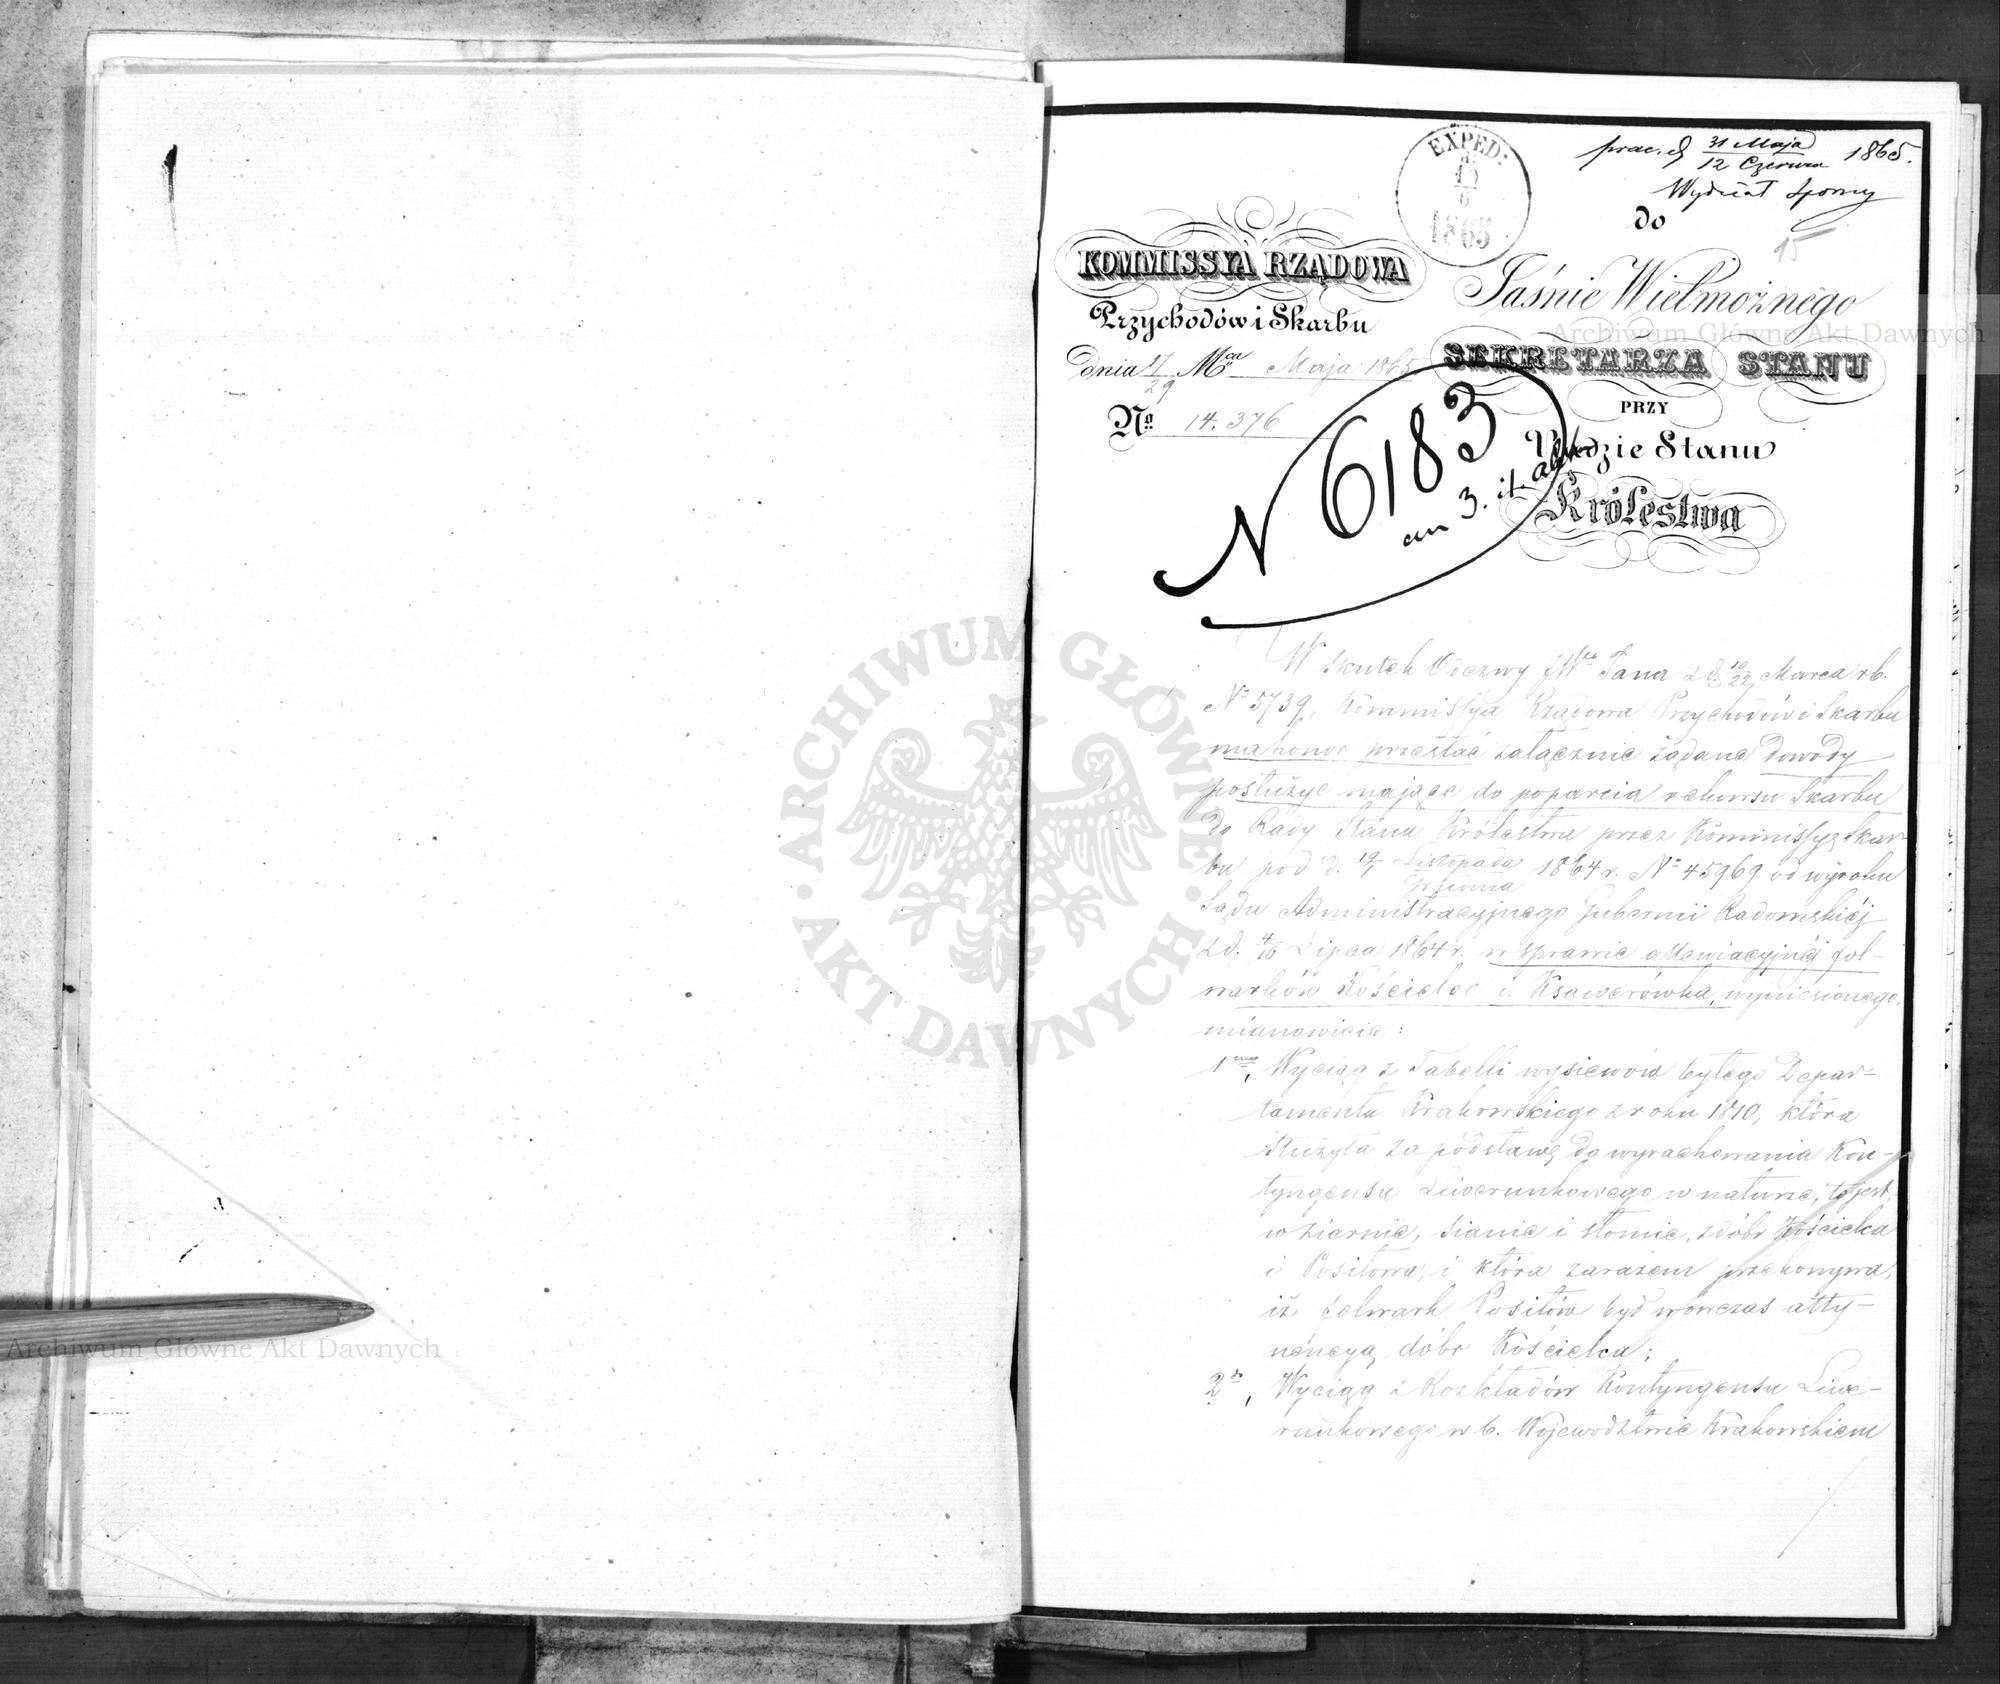 prac. d. 31 Maja / 12 Czerwca 1865.
Wydział Sporny
EXPED:
1865
do
15
KOMMISSYA RZĄDOWA
Przychodów i Skarbu
dnia 17/29 Mca Maja 1865
No 14.376
Jaśnie Wielmożnego
SEKRETARZA STANU
PRZY
Radzie Stanu
Królestwa
N 6183
an 3. it. alleg.
W skutek Odezwy JWgo Pana z d. 10/22 Marca rb.
No 5739, Kommissya Rządowa Przychodów i Skarbu
ma honor przesłać załącznie żądane dowody
posłużyć mające do poparcia rekursu Skarbu
do Rady Stanu Królestwa przez Kommissyę Skar-
bu pod d. 19/1 Listopada/Grudnia 1864 r. No 45969 od wyroku
Sądu Administracyjnego Gubernii Radomskiéj
z d. 4/16 Lipca 1864 r. w sprawie allewiacyjnéj fol-
warków Kościelec i Ksawerówka, wyniesionego,
mianowicie:
1mo, Wyciąg z Tabelli wysiewów byłego Depar-
tamentu Krakowskiego z roku 1810, która
służyła za podstawę do wyrachowania Kon-
tyngensu Liwerunkowego w naturze, to jest,
w ziarnie, sianie i słomie, z dóbr Kościelca
i Positowa, i która zarazem przekonywa,
iż folwark Positów był wówczas atty-
nencyą dóbr Kościelca;
2do, Wyciąg z Rozkładów Kontyngensu Liwe-
runkowego w b. Województwie Krakowskiem
ARCHIWUM GŁÓWNE
AKT DAWNYCH
Archiwum Główne Akt Dawnych
Archiwum Główne Akt Dawnych